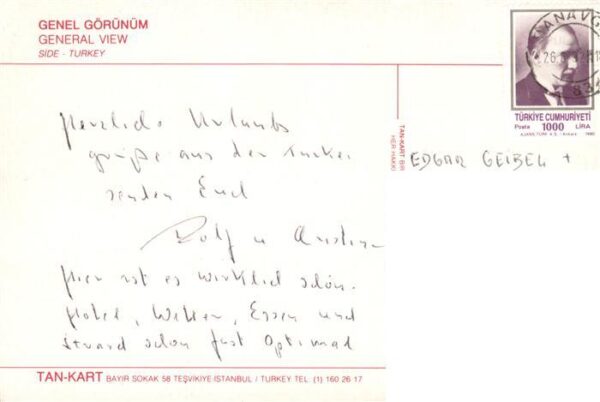 GENEL GÖRÜNÜM
GENERAL VIEW
SIDE - TURKEY
TÜRKİYE CUMHURİYETİ
Posta 1000 LİRA
AJANS-TÜRK A.Ş. - Ankara 1990
MANAVG
26
TAN-KART BİR
HER HAKKI
EDGAR GEIBEL +
Herzliche Urlaubs
grüße aus der Türkei
senden Euch
Rolf u
Hier ist es wirklich schön.
Hotel, Wetter, Essen und
Strand schon fast Optimal
TAN-KART BAYIR SOKAK 58 TEŞVİKİYE-İSTANBUL / TURKEY TEL (1) 160 26 17